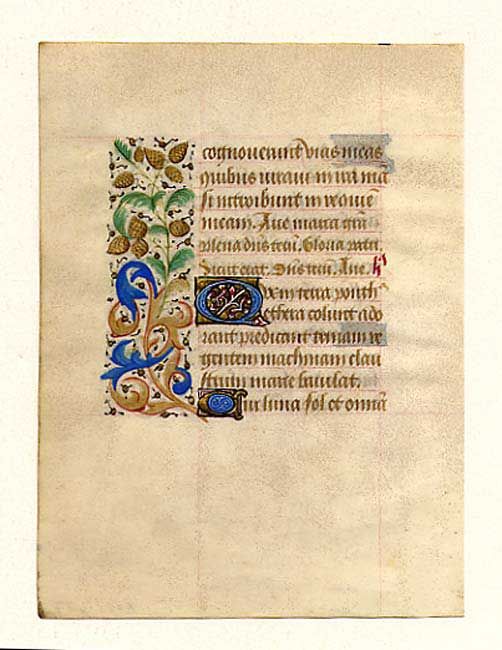 cognouerunt vias meas
Quibus iuraui in ira mea
si introibunt in requiē
meam. Aue maria grā
plena dñs tecū. Gloria patri.
Sicut erat. Dñs tecū. Aue.
Quem terra ponth⁹
ethera colunt ado
rant predicant trinam re
gentem machinam clau
strum marie baiulat.
Cui luna sol et omnia